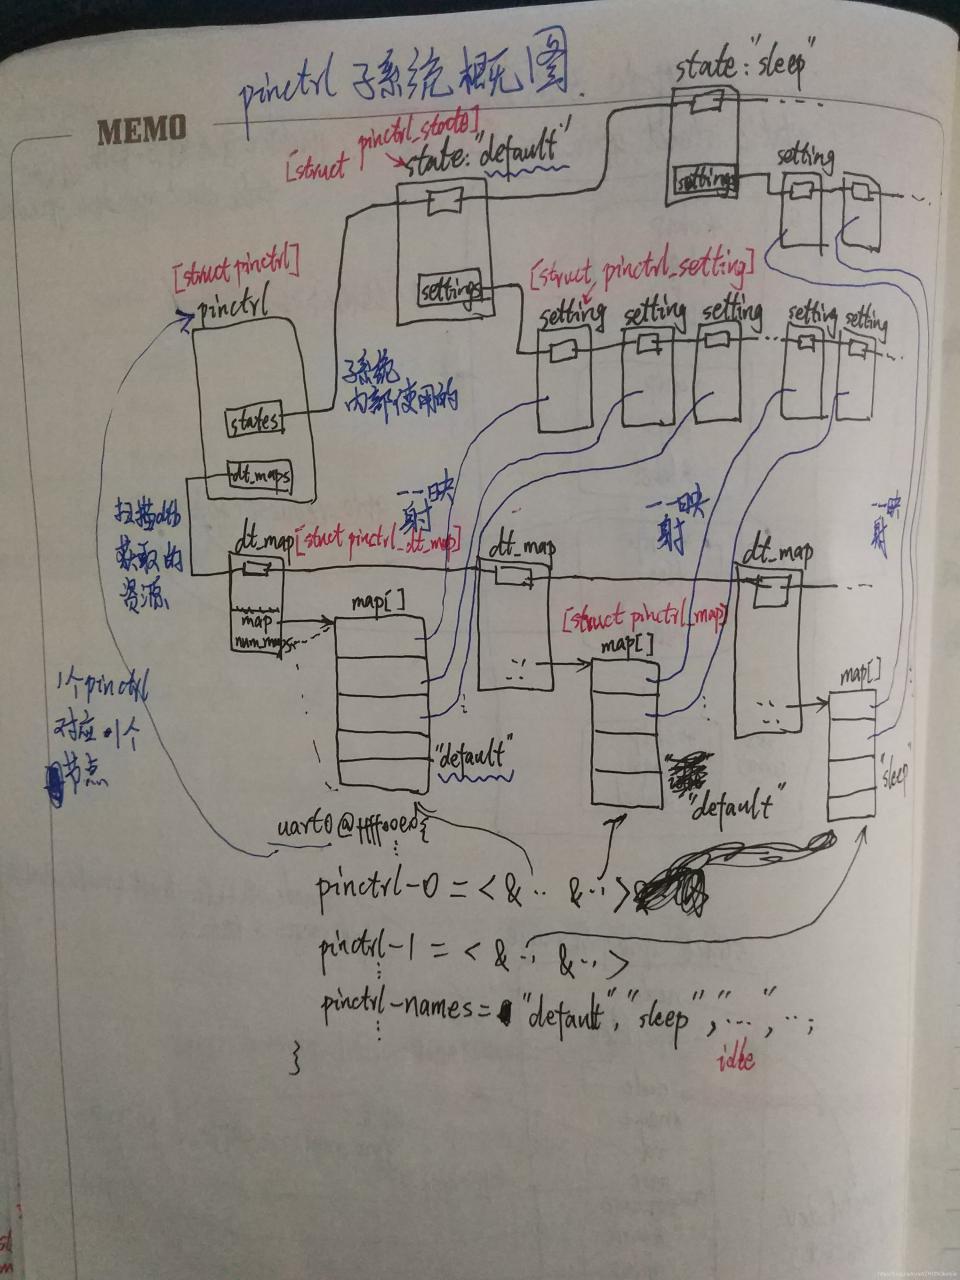 pinctrl 子系统概况图.
MEMO
state:"sleep"
[struct pinctrl_state]
state:"default"
settings
setting
[struct pinctrl]
pinctrl
settings
[struct pinctrl_setting]
setting
setting
setting
setting
setting
子系统
内部使用的
states
dt_maps
扫描dtb
获取的
资源
一一映
射
一一映
射
一一映
射
dt_map
[struct pinctrl_dt_map]
dt_map
dt_map
map
num_maps
map[]
[struct pinctrl_map]
map[]
map[]
1个pinctrl
对应1个
节点
"default"
"default"
"sleep"
pinctrl-0 = <&.. &..>
pinctrl-1 = <&.. &..>
pinctrl-names= "default","sleep","...",..;
idle
}